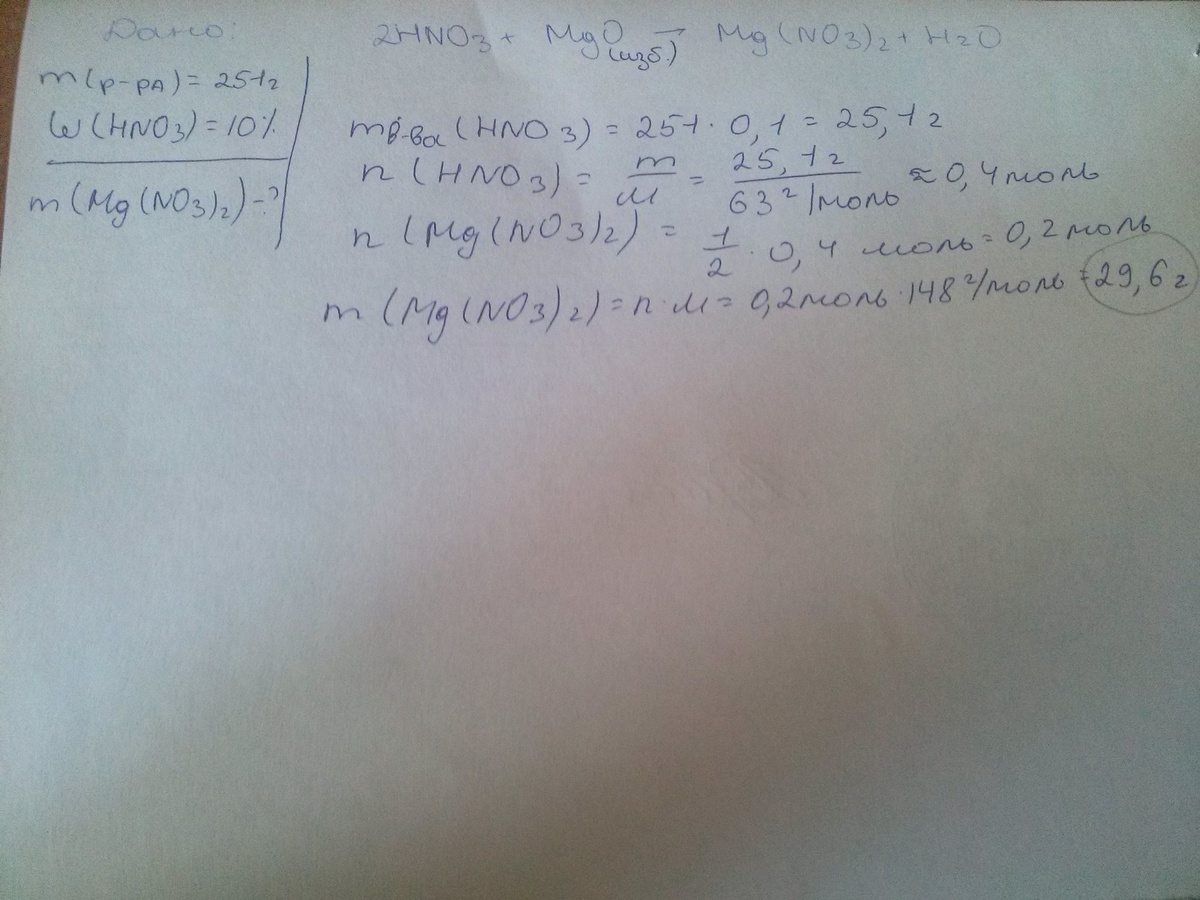 Дано:
m(р-ра) = 251г
W(HNO3) = 10%
m(Mg(NO3)2) - ?
2HNO3 + MgO (изб.) → Mg(NO3)2 + H2O
mв-ва(HNO3) = 251 · 0,1 = 25,1 г
n(HNO3) = m/M = 25,1г/63 г/моль ≈ 0,4 моль
n(Mg(NO3)2) = 1/2 · 0,4 моль = 0,2 моль
m(Mg(NO3)2) = n·M = 0,2 моль · 148 г/моль = 29,6 г